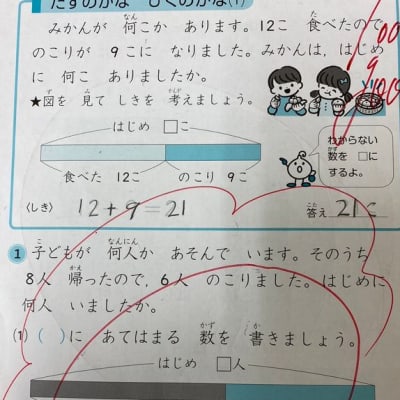 たすのかな ひくのかな(1)
みかんが 何こか あります。12こ 食べたので
のこりが 9こに なりました。みかんは、はじめ
に 何こ ありましたか。
★図を 見て しきを 考えましょう。
はじめ □こ
食べた 12こ のこり 9こ
わからない
数を □に
するよ。
〈しき〉 12+9=21 答え 21こ
1 子どもが 何人か あそんで います。そのうち
8人 帰ったので、6人 のこりました。はじめに
何人 いましたか。
(1) ( )に あてはまる 数を 書きましょう。
はじめ □人